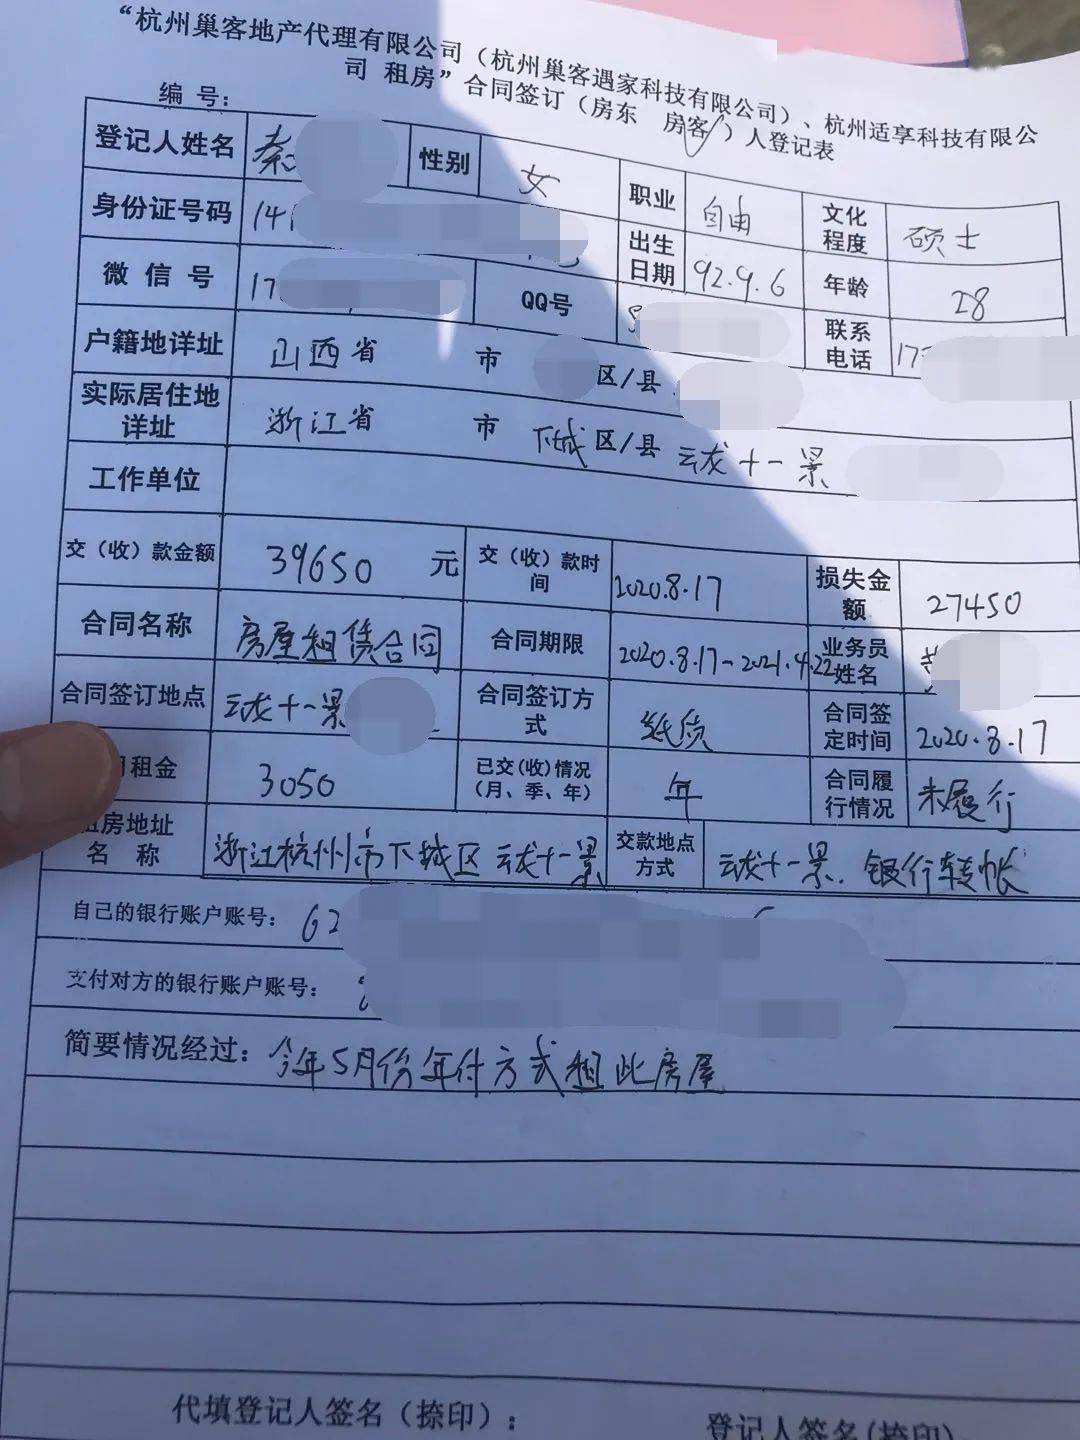 “杭州巢客地产代理有限公司（杭州巢客遇家科技有限公司）、杭州适享科技有限公
司 租房”合同签订（房东 房客✓）人登记表
编 号：
登记人姓名 秦 性别 女 职业 自由 文化程度 硕士
身份证号码 141 出生日期 92.9.6 年龄 28
微 信 号 17 QQ号 联系电话 17
户籍地详址 山西省 市 区/县
实际居住地详址 浙江省 市 下城区/县 云龙十一景
工作单位
交（收）款金额 39650 元 交（收）款时间 2020.8.17 损失金额 27450
合同名称 房屋租赁合同 合同期限 2020.8.17-2021.4.22 业务员姓名
合同签订地点 云龙十一景 合同签订方式 纸质 合同签定时间 2020.8.17
租金 3050 已交(收)情况（月、季、年） 年 合同履行情况 未履行
租房地址名 称 浙江杭州市下城区云龙十一景 交款地点方式 云龙十一景.银行转帐
自己的银行账户账号：62
支付对方的银行账户账号：
简要情况经过：今年5月份年付方式租此房屋
代填登记人签名（捺印）： 登记人签名(捺印)